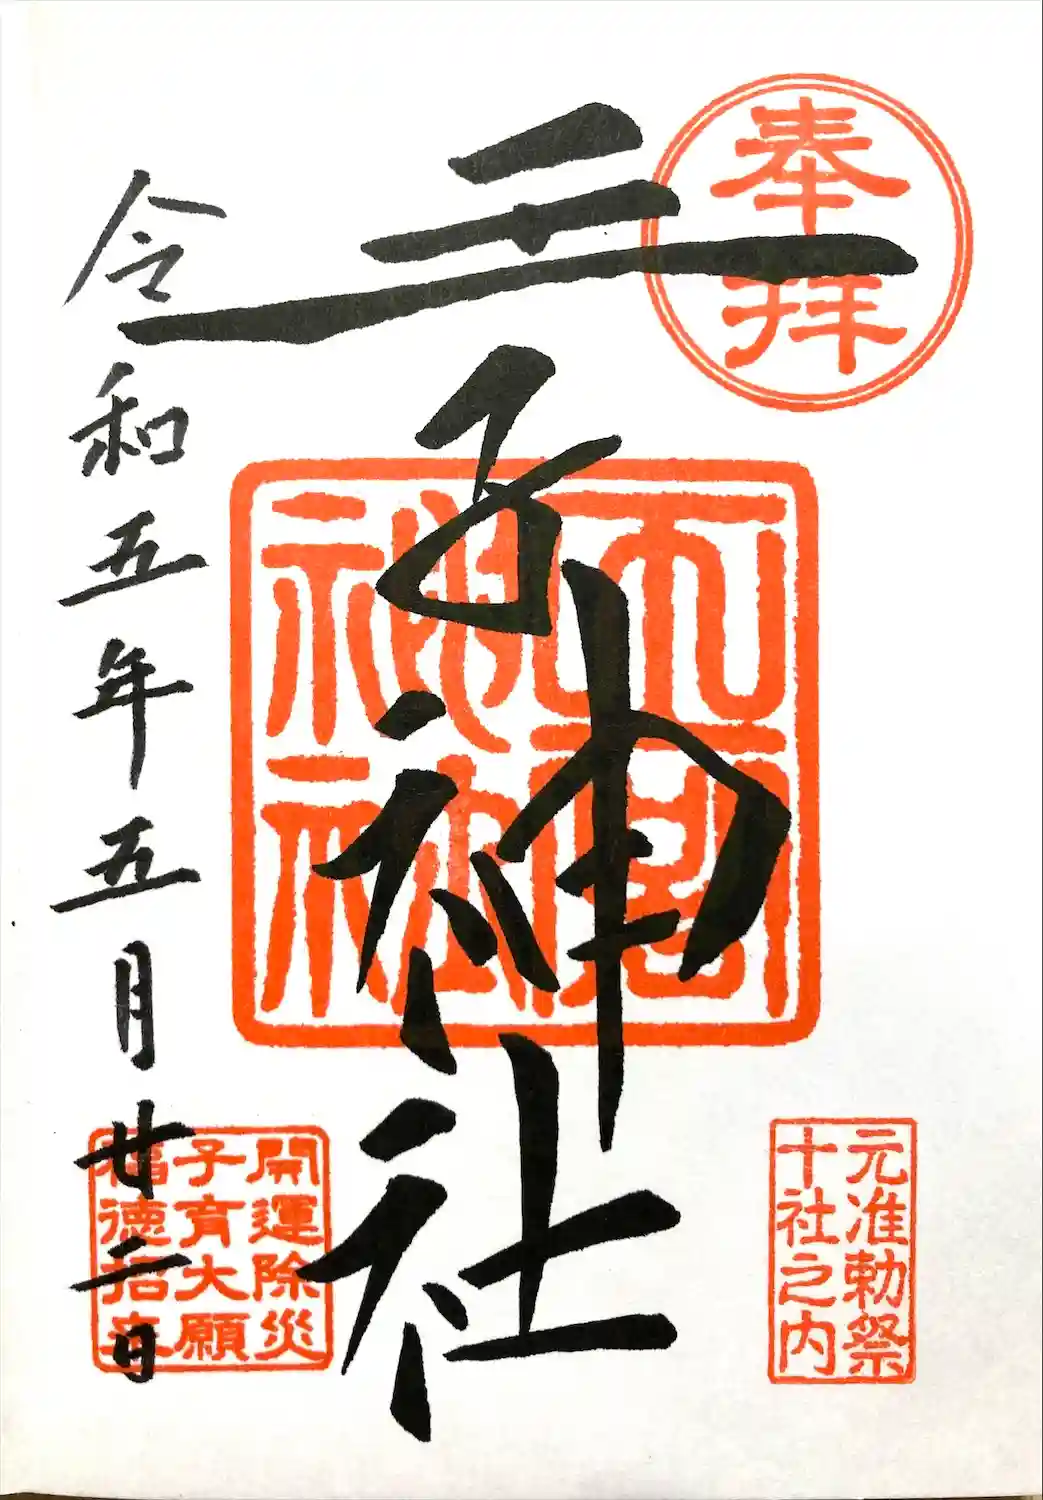 奉拝
王子神社
神社
令和五年五月廿二日
元准勅祭
十社之内
開運除災
子育大願
福徳招来